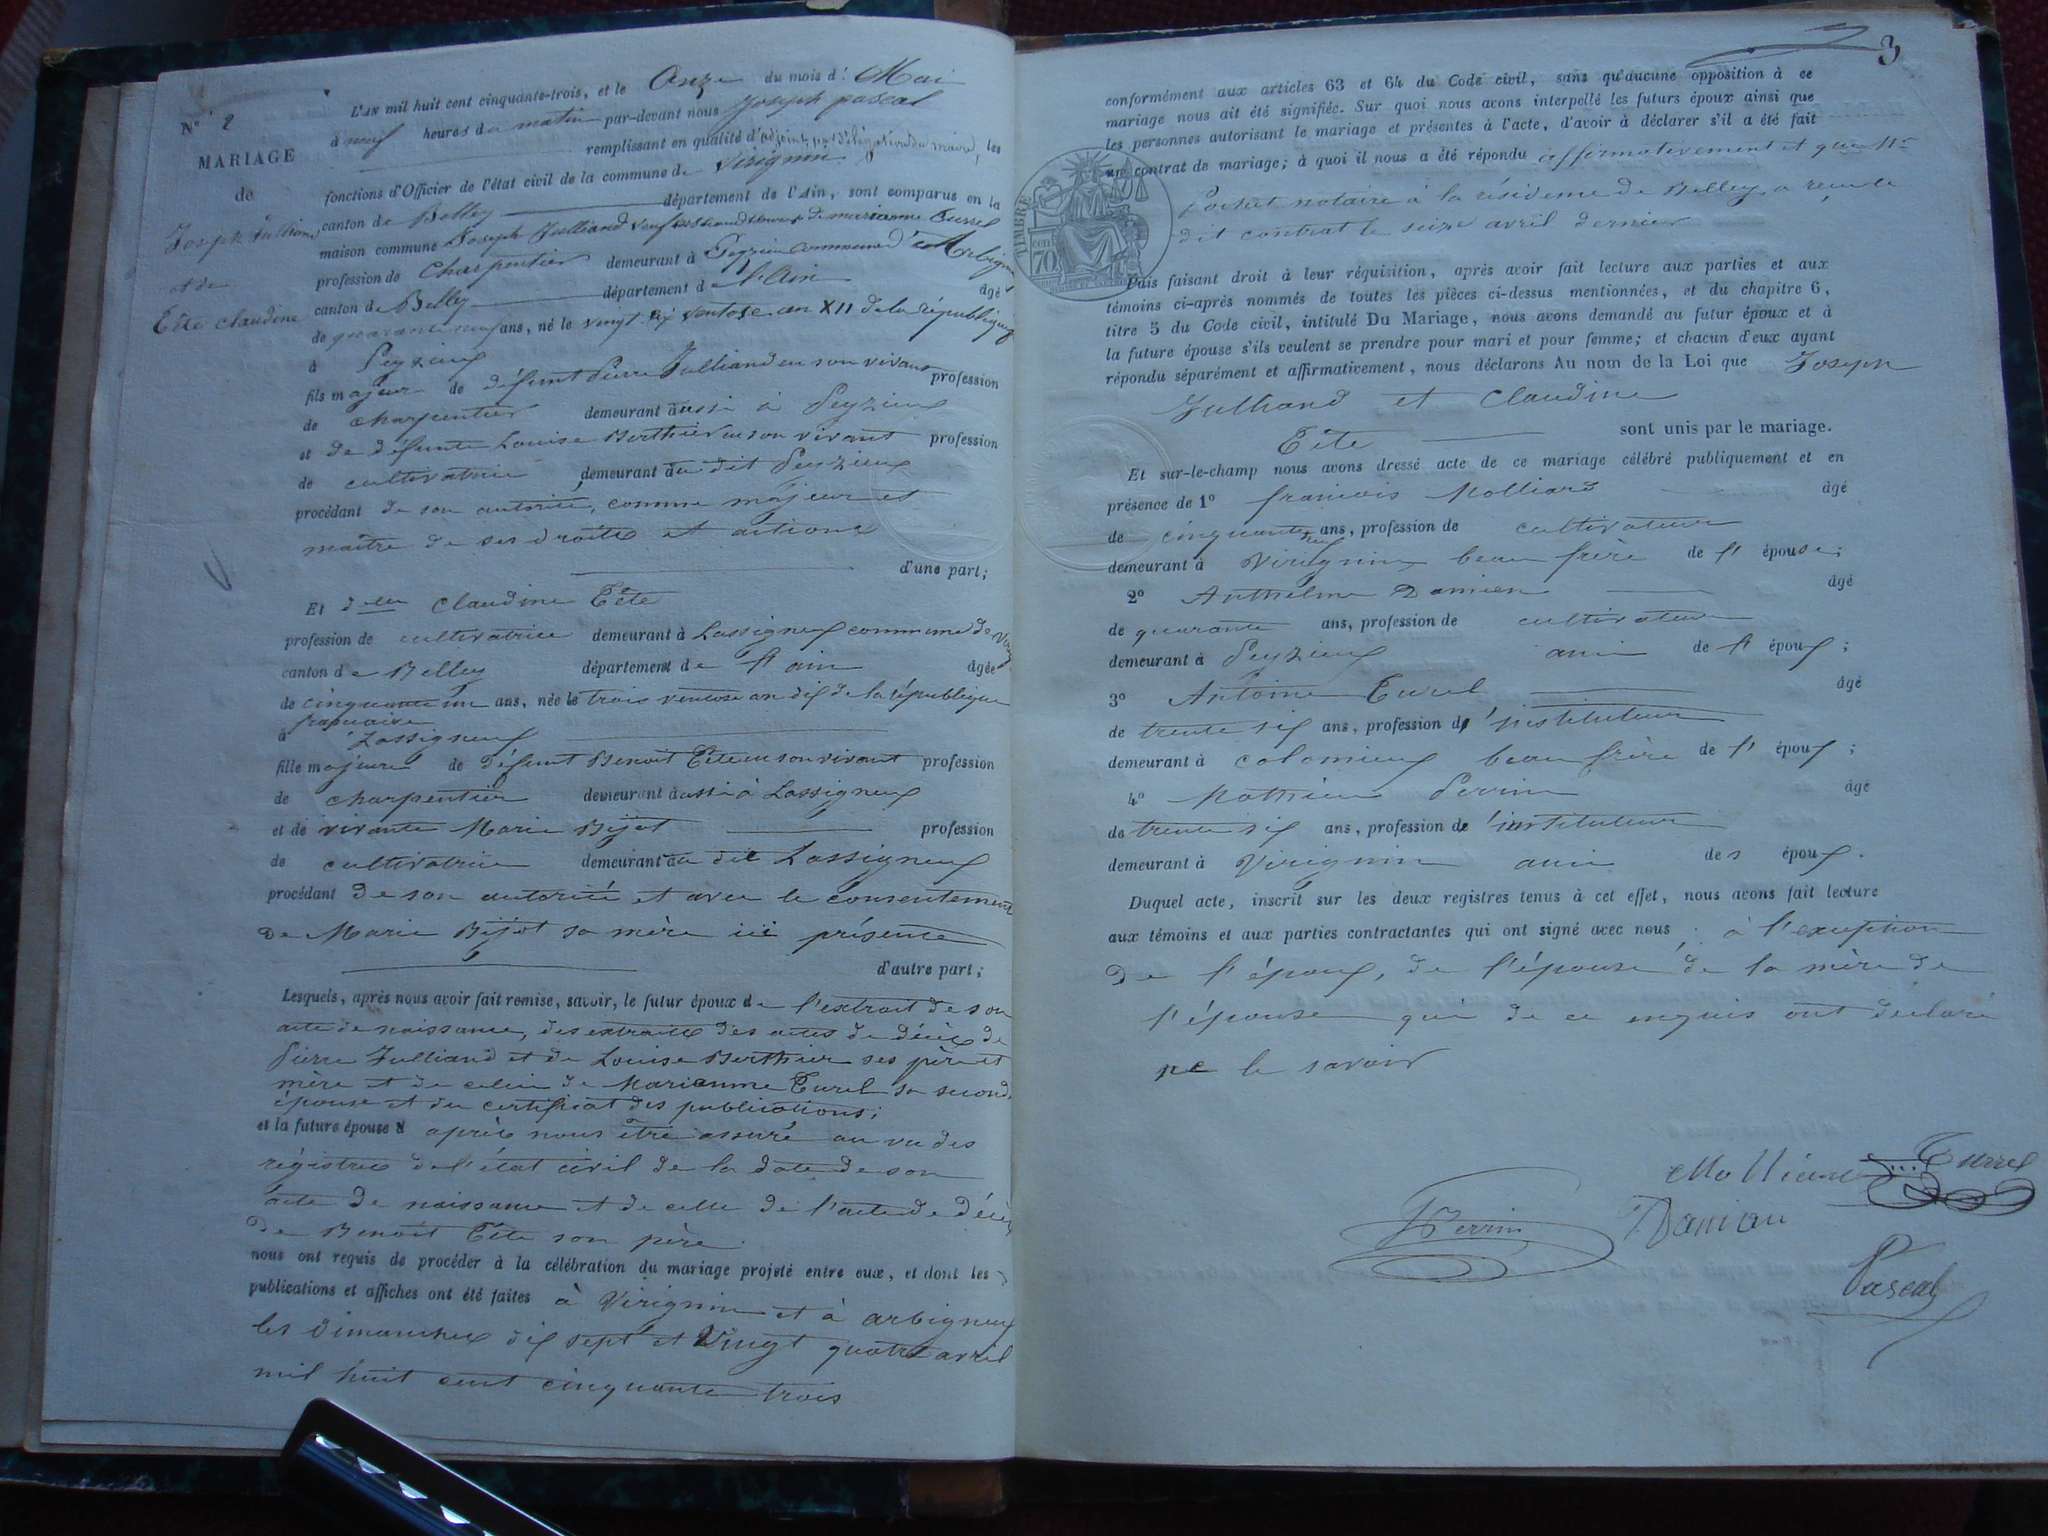 N° 2
MARIAGE
de
Joseph Julliand
et de
Tête Claudine
L'AN mil huit cent cinquante-trois, et le Onze du mois d Mai
à neuf heures du matin par-devant nous Joseph pascal
remplissant en qualité d'adjoint, par délégation du maire, les
fonctions d'Officier de l'état civil de la commune de Virignin
canton de Belley département de l'Ain, sont comparus en la
maison commune Joseph Julliand veuf de marianne Turrel
profession de Charpentier demeurant à Peyzieu commune d'Arbignieu
canton de Belley département de l'Ain âgé
de quarante neuf ans, né le vingt six ventose an XII de la république
à Peyzieux
fils majeur de défunt Pierre Julliand en son vivant profession
de charpentier demeurant aussi à Peyzieux
et de défunte Louise Berthier en son vivant profession
de cultivatrice demeurant au dit Peyzieux
procédant de son autorité, comme majeur et
maître de ses droits et actions
d'une part;
Et delle Claudine Tête
profession de cultivatrice demeurant à Lassigneux commune de
canton de Belley département de l'ain âgée
de cinquante un ans, née le trois ventose an dix de la république
française
à Lassigneux
fille majeure de défunt Benoit Tête en son vivant profession
de charpentier demeurant aussi à Lassigneux
et de vivante Marie Bijot profession
de cultivatrice demeurant au dit Lassigneux
procédant de son autorité et avec le consentement
de Marie Bijot sa mère ici présente
d'autre part;
Lesquels, après nous avoir fait remise, savoir, le futur époux de l'extrait de son
acte de naissance, des extraits des actes de décès de
Pierre Julliand et de Louise Berthier ses père et
mère et de celui de Marianne Turel sa seconde
épouse et du certificat des publications;
et la future épouse après nous être assuré au vu des
régistres de l'état civil de la date de son
acte de naissance et de celle de l'acte de décès
de Benoit Tête son père.
nous ont requis de procéder à la célébration du mariage projeté entre eux, et dont les
publications et affiches ont été faites à Virignin et à arbignieux
les dimanches dix sept et vingt quatre avril
mil huit cent cinquante trois
3
conformément aux articles 63 et 64 du Code civil, sans qu'aucune opposition à ce
mariage nous ait été signifiée. Sur quoi nous avons interpellé les futurs époux ainsi que
les personnes autorisant le mariage et présentes à l'acte, d'avoir à déclarer s'il a été fait
un contrat de mariage; à quoi il nous a été répondu affirmativement et que Me
notaire à la résidence de Belley a reçu le
dit contrat le seize avril dernier
TIMBRE
70 cent
Puis faisant droit à leur réquisition, après avoir fait lecture aux parties et aux
témoins ci-après nommés de toutes les pièces ci-dessus mentionnées, et du chapitre 6,
titre 5 du Code civil, intitulé Du Mariage, nous avons demandé au futur époux et à
la future épouse s'ils veulent se prendre pour mari et pour femme; et chacun d'eux ayant
répondu séparément et affirmativement, nous déclarons Au nom de la Loi que Joseph
Julliand et Claudine
Tête sont unis par le mariage.
Et sur-le-champ nous avons dressé acte de ce mariage célébré publiquement et en
présence de 1° françois Molliard âgé
de cinquante neuf ans, profession de cultivateur
demeurant à Virignin beau frère de l'épouse;
2° Anthelme Damien âgé
de quarante ans, profession de cultivateur
demeurant à Peyzieux ami de l'époux;
3° Antoine Turel âgé
de trente six ans, profession d'instituteur
demeurant à colomieux beau frère de l'époux;
4° Mathieu Perrin âgé
de trente six ans, profession d'instituteur
demeurant à Virignin ami des époux.
Duquel acte, inscrit sur les deux registres tenus à cet effet, nous avons fait lecture
aux témoins et aux parties contractantes qui ont signé avec nous; à l'exception
de l'époux, de l'épouse de la mère de
l'épouse qui de ce enquis ont déclaré
ne le savoir
Molliard Turrel
Perrin Damian
Pascal